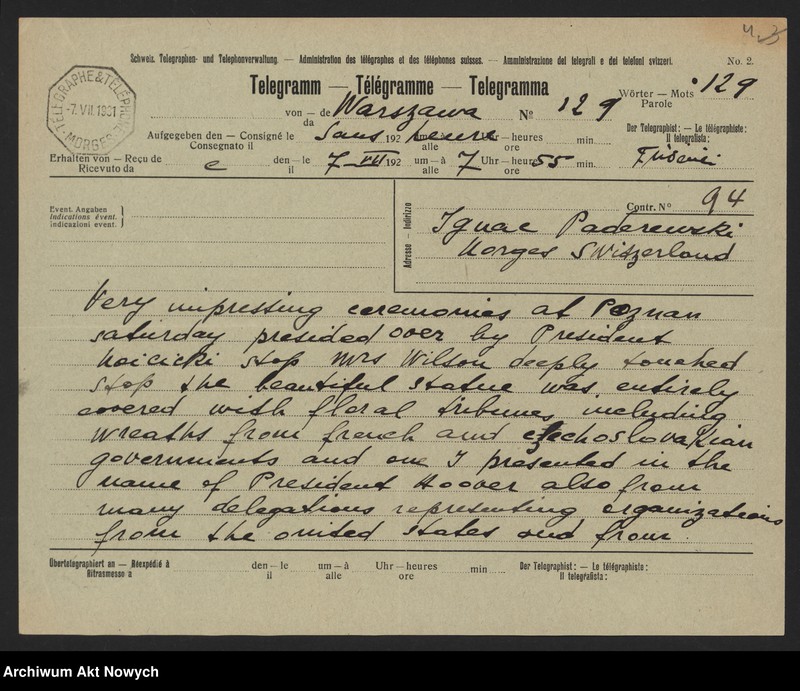 4.3
Schweiz. Telegraphen- und Telephonverwaltung. — Administration des télégraphes et des téléphones suisses. — Amministrazione dei telegrafi e dei telefoni svizzeri. No. 2.
Telegramm — Télégramme — Telegramma
Wörter — Mots 129
Parole
TELEGRAPHE & TÉLÉPHONE
-7.VII.1931
MORGES
von — de Warszawa N° 129
da
Aufgegeben den — Consigné le Sans 192 heure Uhr — heures min.
Consegnato il alle ore
Der Telegraphist: — Le télégraphiste:
Il telegrafista:
Erhalten von — Reçu de e den — le 7 VII 192 um — à 7 Uhr — heures 55 min.
Ricevuto da il alle ore
Event. Angaben
Indications évent.
Indicazioni event.
Adresse — Indirizzo
Contr. N° 94
Ignac Paderewski
Morges Switzerland
Very impressing ceremonies at Poznan
saturday presided over by President
Moicicki stop Mrs Wilson deeply touched
stop the beautiful statue was entirely
covered with floral tribunes including
wreaths from french and czechoslovakian
governments and one I presented in the
name of President Hoover also from
many delegations representing organizations
from the united states and from
Übertelegraphiert an — Réexpédié à den — le um — à Uhr — heures min Der Telegraphist: — Le télégraphiste:
Ritrasmesso a il alle ore Il telegrafista:
Archiwum Akt Nowych